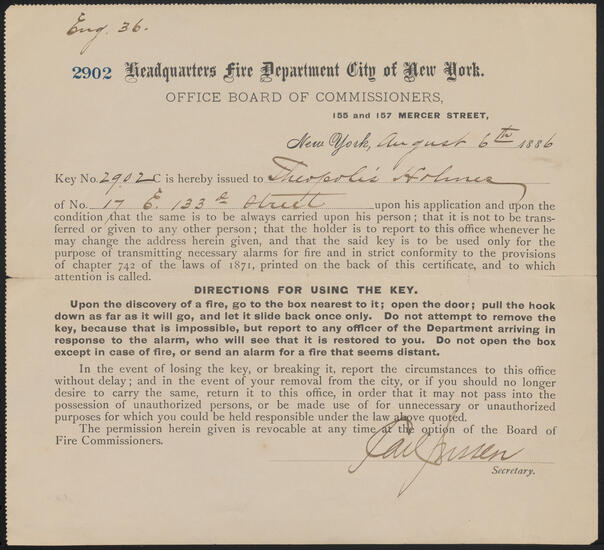 Eng. 36.
2902 Headquarters Fire Department City of New York.
OFFICE BOARD OF COMMISSIONERS,
155 and 157 MERCER STREET,
New York, August 6th 1886
Key No. 2902 C is hereby issued to Theopolis Holmes
of No. 17 E. 133d Street upon his application and upon the
condition that the same is to be always carried upon his person; that it is not to be trans-
ferred or given to any other person; that the holder is to report to this office whenever he
may change the address herein given, and that the said key is to be used only for the
purpose of transmitting necessary alarms for fire and in strict conformity to the provisions
of chapter 742 of the laws of 1871, printed on the back of this certificate, and to which
attention is called.
DIRECTIONS FOR USING THE KEY.
Upon the discovery of a fire, go to the box nearest to it; open the door; pull the hook
down as far as it will go, and let it slide back once only. Do not attempt to remove the
key, because that is impossible, but report to any officer of the Department arriving in
response to the alarm, who will see that it is restored to you. Do not open the box
except in case of fire, or send an alarm for a fire that seems distant.
In the event of losing the key, or breaking it, report the circumstances to this office
without delay; and in the event of your removal from the city, or if you should no longer
desire to carry the same, return it to this office, in order that it may not pass into the
possession of unauthorized persons, or be made use of for unnecessary or unauthorized
purposes for which you could be held responsible under the law above quoted.
The permission herein given is revocable at any time at the option of the Board of
Fire Commissioners.
Carl Jussen
Secretary.